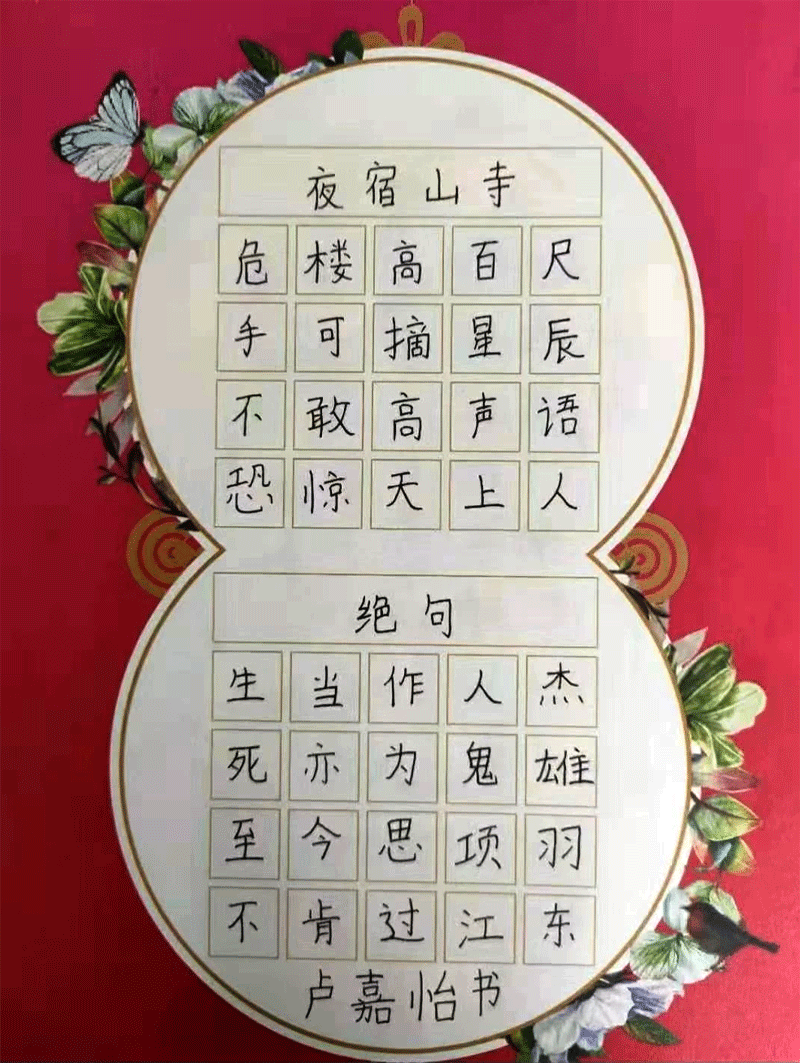 夜宿山寺
危楼高百尺
手可摘星辰
不敢高声语
恐惊天上人
绝句
生当作人杰
死亦为鬼雄
至今思项羽
不肯过江东
卢嘉怡书